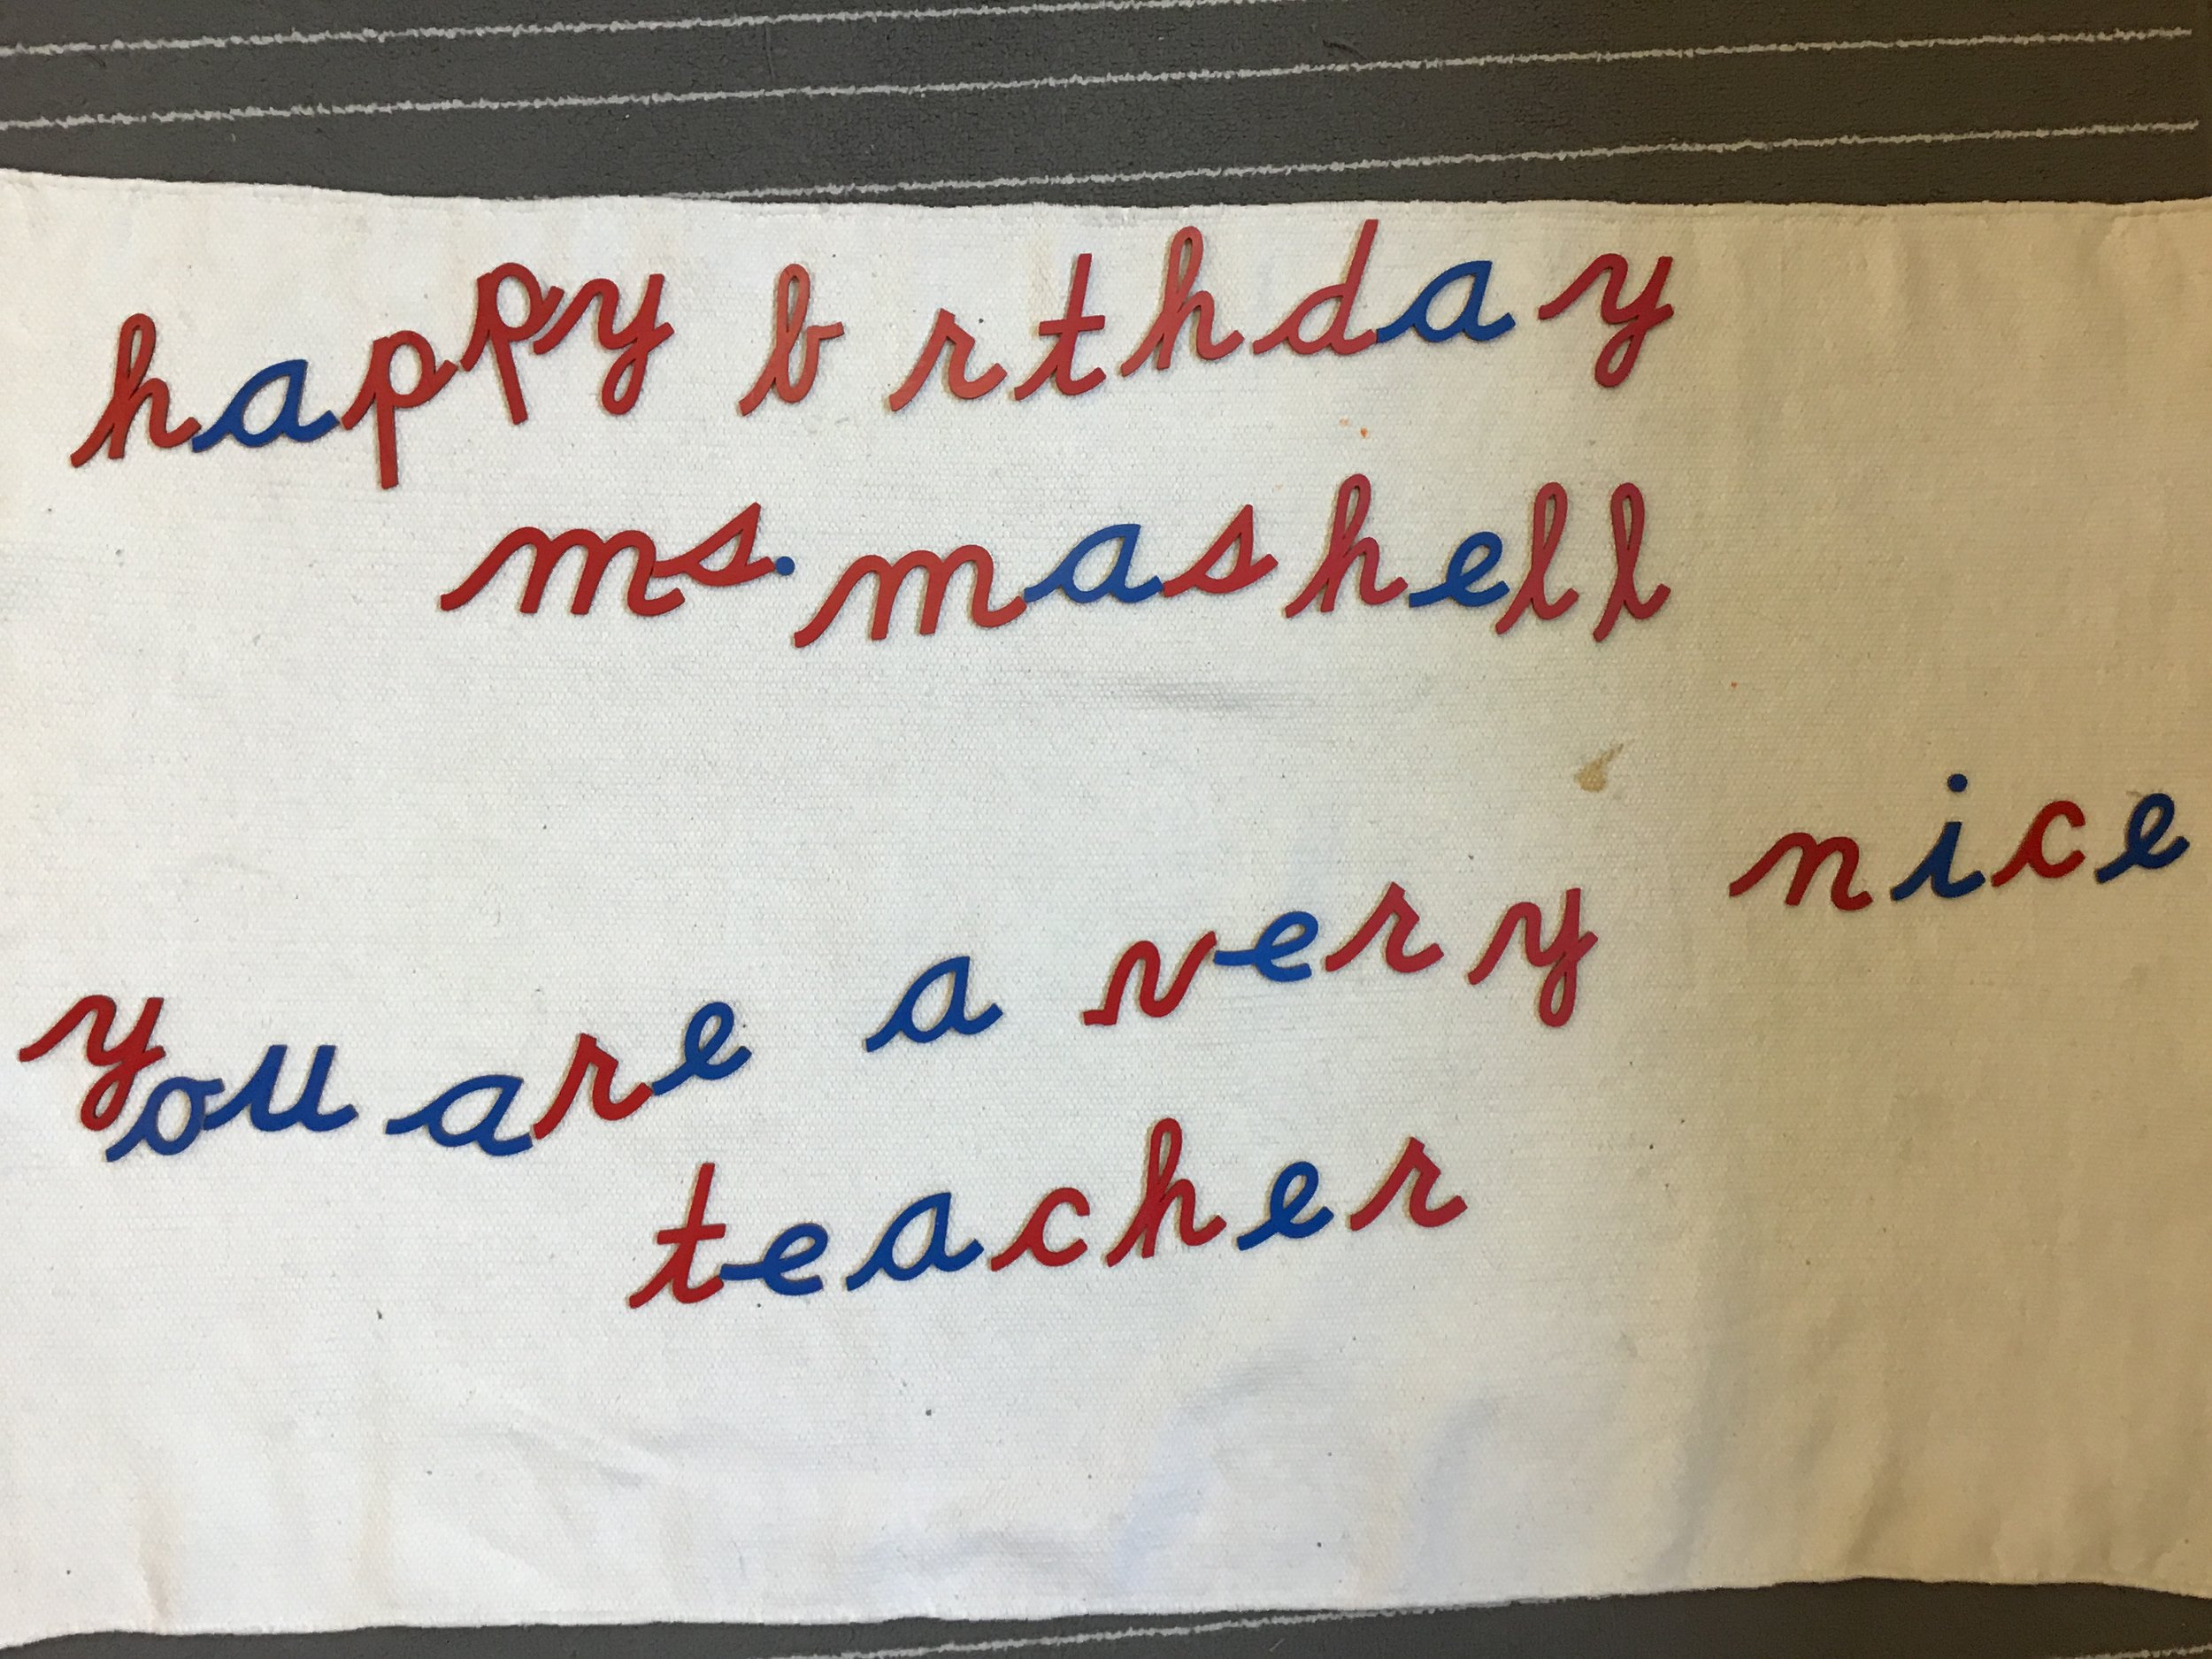 happy b rthday
ms. mashell
you are a very nice
teacher